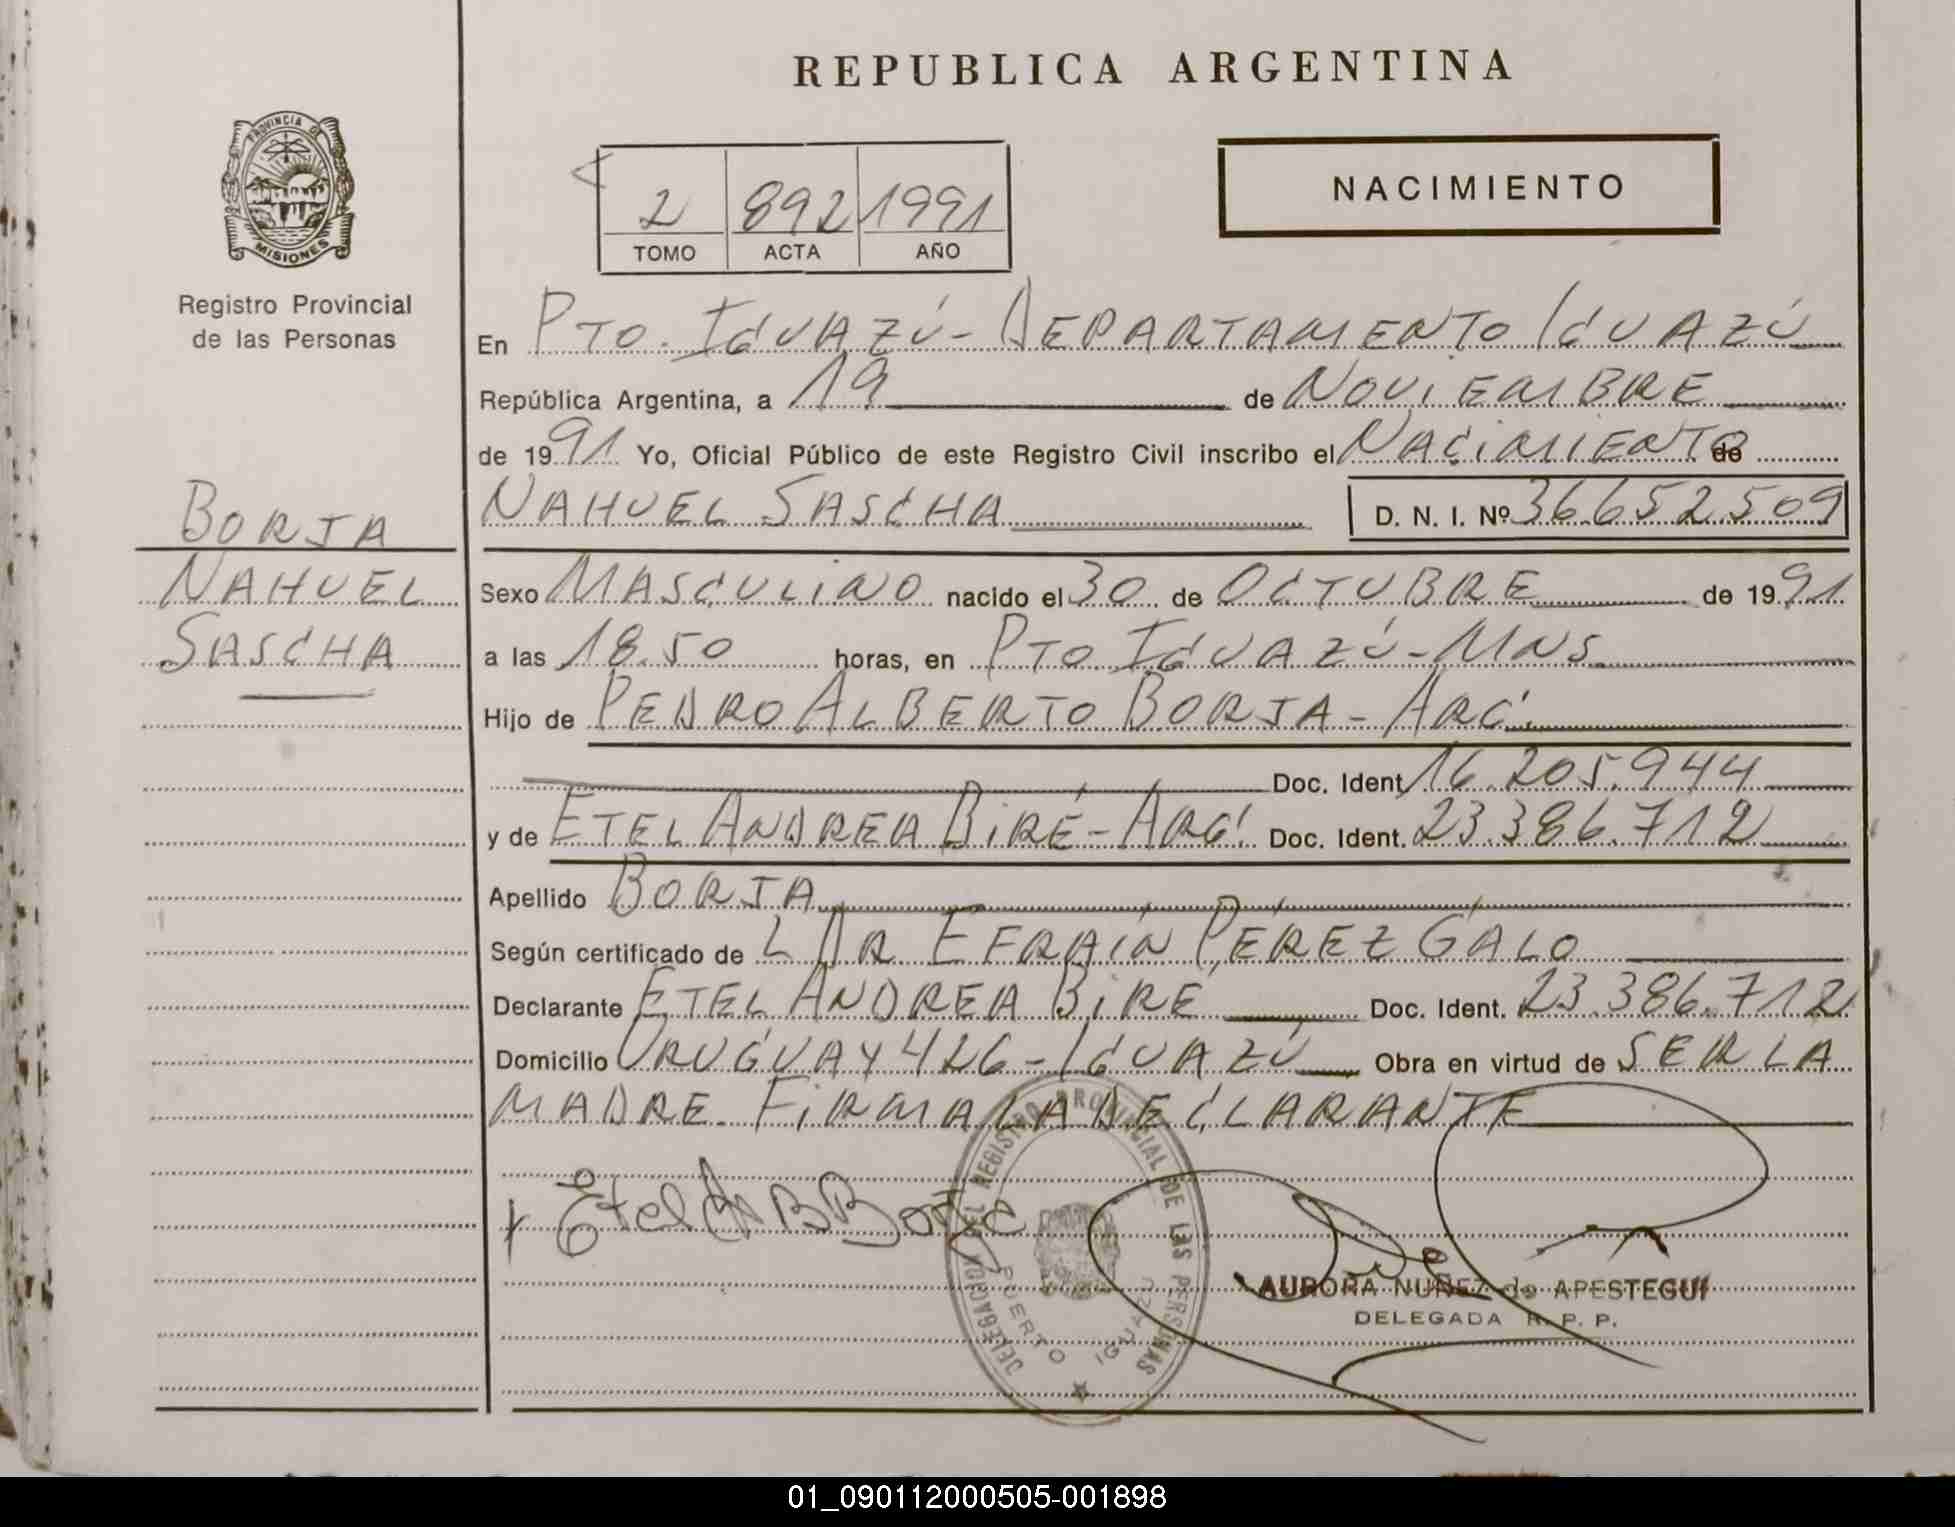 REPUBLICA ARGENTINA
PROVINCIA DE MISIONES
Registro Provincial
de las Personas
2 892 1991
TOMO ACTA AÑO
NACIMIENTO
En PTO. IGUAZÚ - DEPARTAMENTO IGUAZÚ
República Argentina, a 19 de NOVIEMBRE
de 1991 Yo, Oficial Público de este Registro Civil inscribo el NACIMIENTO de
NAHUEL SASCHA D. N. I. Nº 36.652.509
BORJA
NAHUEL
SASCHA
Sexo MASCULINO nacido el 30 de OCTUBRE de 1991
a las 18.50 horas, en PTO IGUAZÚ - MNS.
Hijo de PEDRO ALBERTO BORJA - ARG.
Doc. Ident. 16.205.944
y de ETEL ANDREA BIRÉ - ARG. Doc. Ident. 23.386.712
Apellido BORJA
Según certificado de L DR EFRAÍN PÉREZ GALO
Declarante ETEL ANDREA BIRÉ Doc. Ident. 23.386.712
Domicilio URUGUAY 426 - IGUAZÚ Obra en virtud de SER LA
MADRE. FIRMA LA DECLARANTE
DELEGACION DEL REGISTRO PROVINCIAL DE LAS PERSONAS
PUERTO IGUAZU
AURORA NUÑEZ de APESTEGUI
DELEGADA R. P. P.
01_090112000505-001898